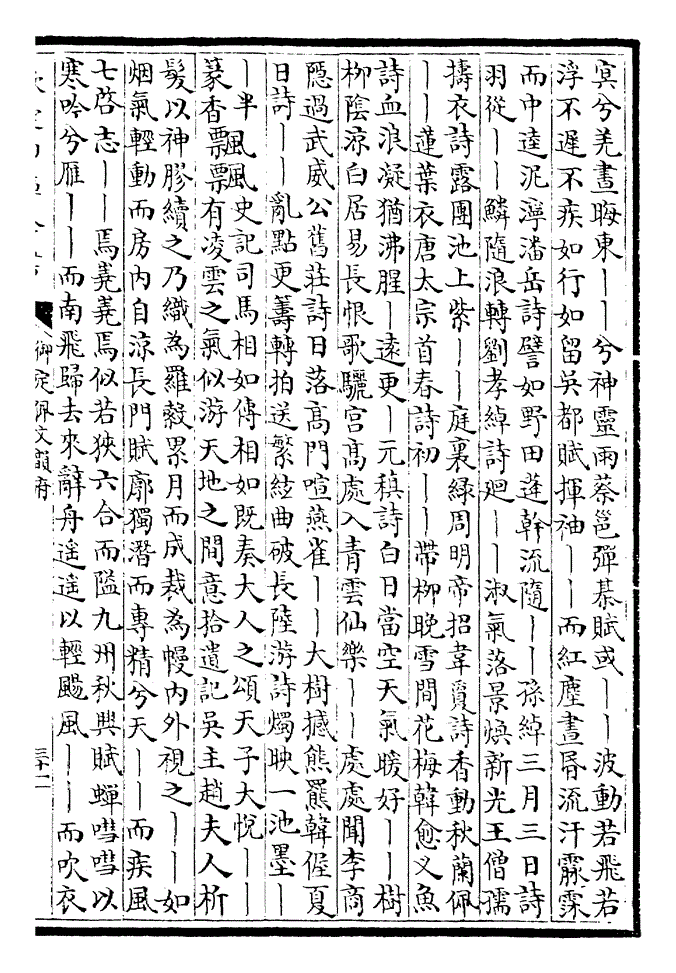 冥兮羌晝晦東丨丨兮神靈雨蔡邕彈棊賦或丨丨波動若飛若
浮不遲不疾如行如留吳都賦揮袖丨丨而紅塵晝昏流汗霢霂
而中逵泥濘潘岳詩譬如野田蓬幹流隨丨丨孫綽三月三日詩
羽從丨丨鱗隨浪轉劉孝綽詩廻丨丨淑氣落景煥新光王僧孺
擣衣詩露團池上紫丨丨庭裏綠周明帝招韋敻詩香動秋蘭佩
丨丨蓮葉衣唐太宗首春詩初丨丨帶柳晚雪間花梅韓愈叉魚
詩血浪凝猶沸腥丨遠更丨元稹詩白日當空天氣暖好丨丨樹
柳陰涼白居易長恨歌驪宮高處入青雲仙樂丨丨處處聞李商
隱過武威公舊莊詩日落高門喧燕雀丨丨大樹撼熊羆韓偓夏
日詩丨丨亂點更籌轉拍送繁絃曲破長陸游詩燭映一池墨丨
丨半
篆香
飄飄
史記司馬相如傳相如既奏大人之頌天子大悅丨丨
有凌雲之氣似游天地之間意拾遺記吳主趙夫人析
髮以神膠續之乃織為羅縠累月而成裁為幔內外視之丨丨如
烟氣輕動而房內自涼長門賦廓獨潛而專精兮天丨丨而疾風
七啓志丨丨焉嶤嶤焉似若狹六合而隘九州秋興賦蟬嘒嘒以
寒吟兮雁丨丨而南飛歸去來辭舟遥遥以輕颺風丨丨而吹衣
御定佩文韻府